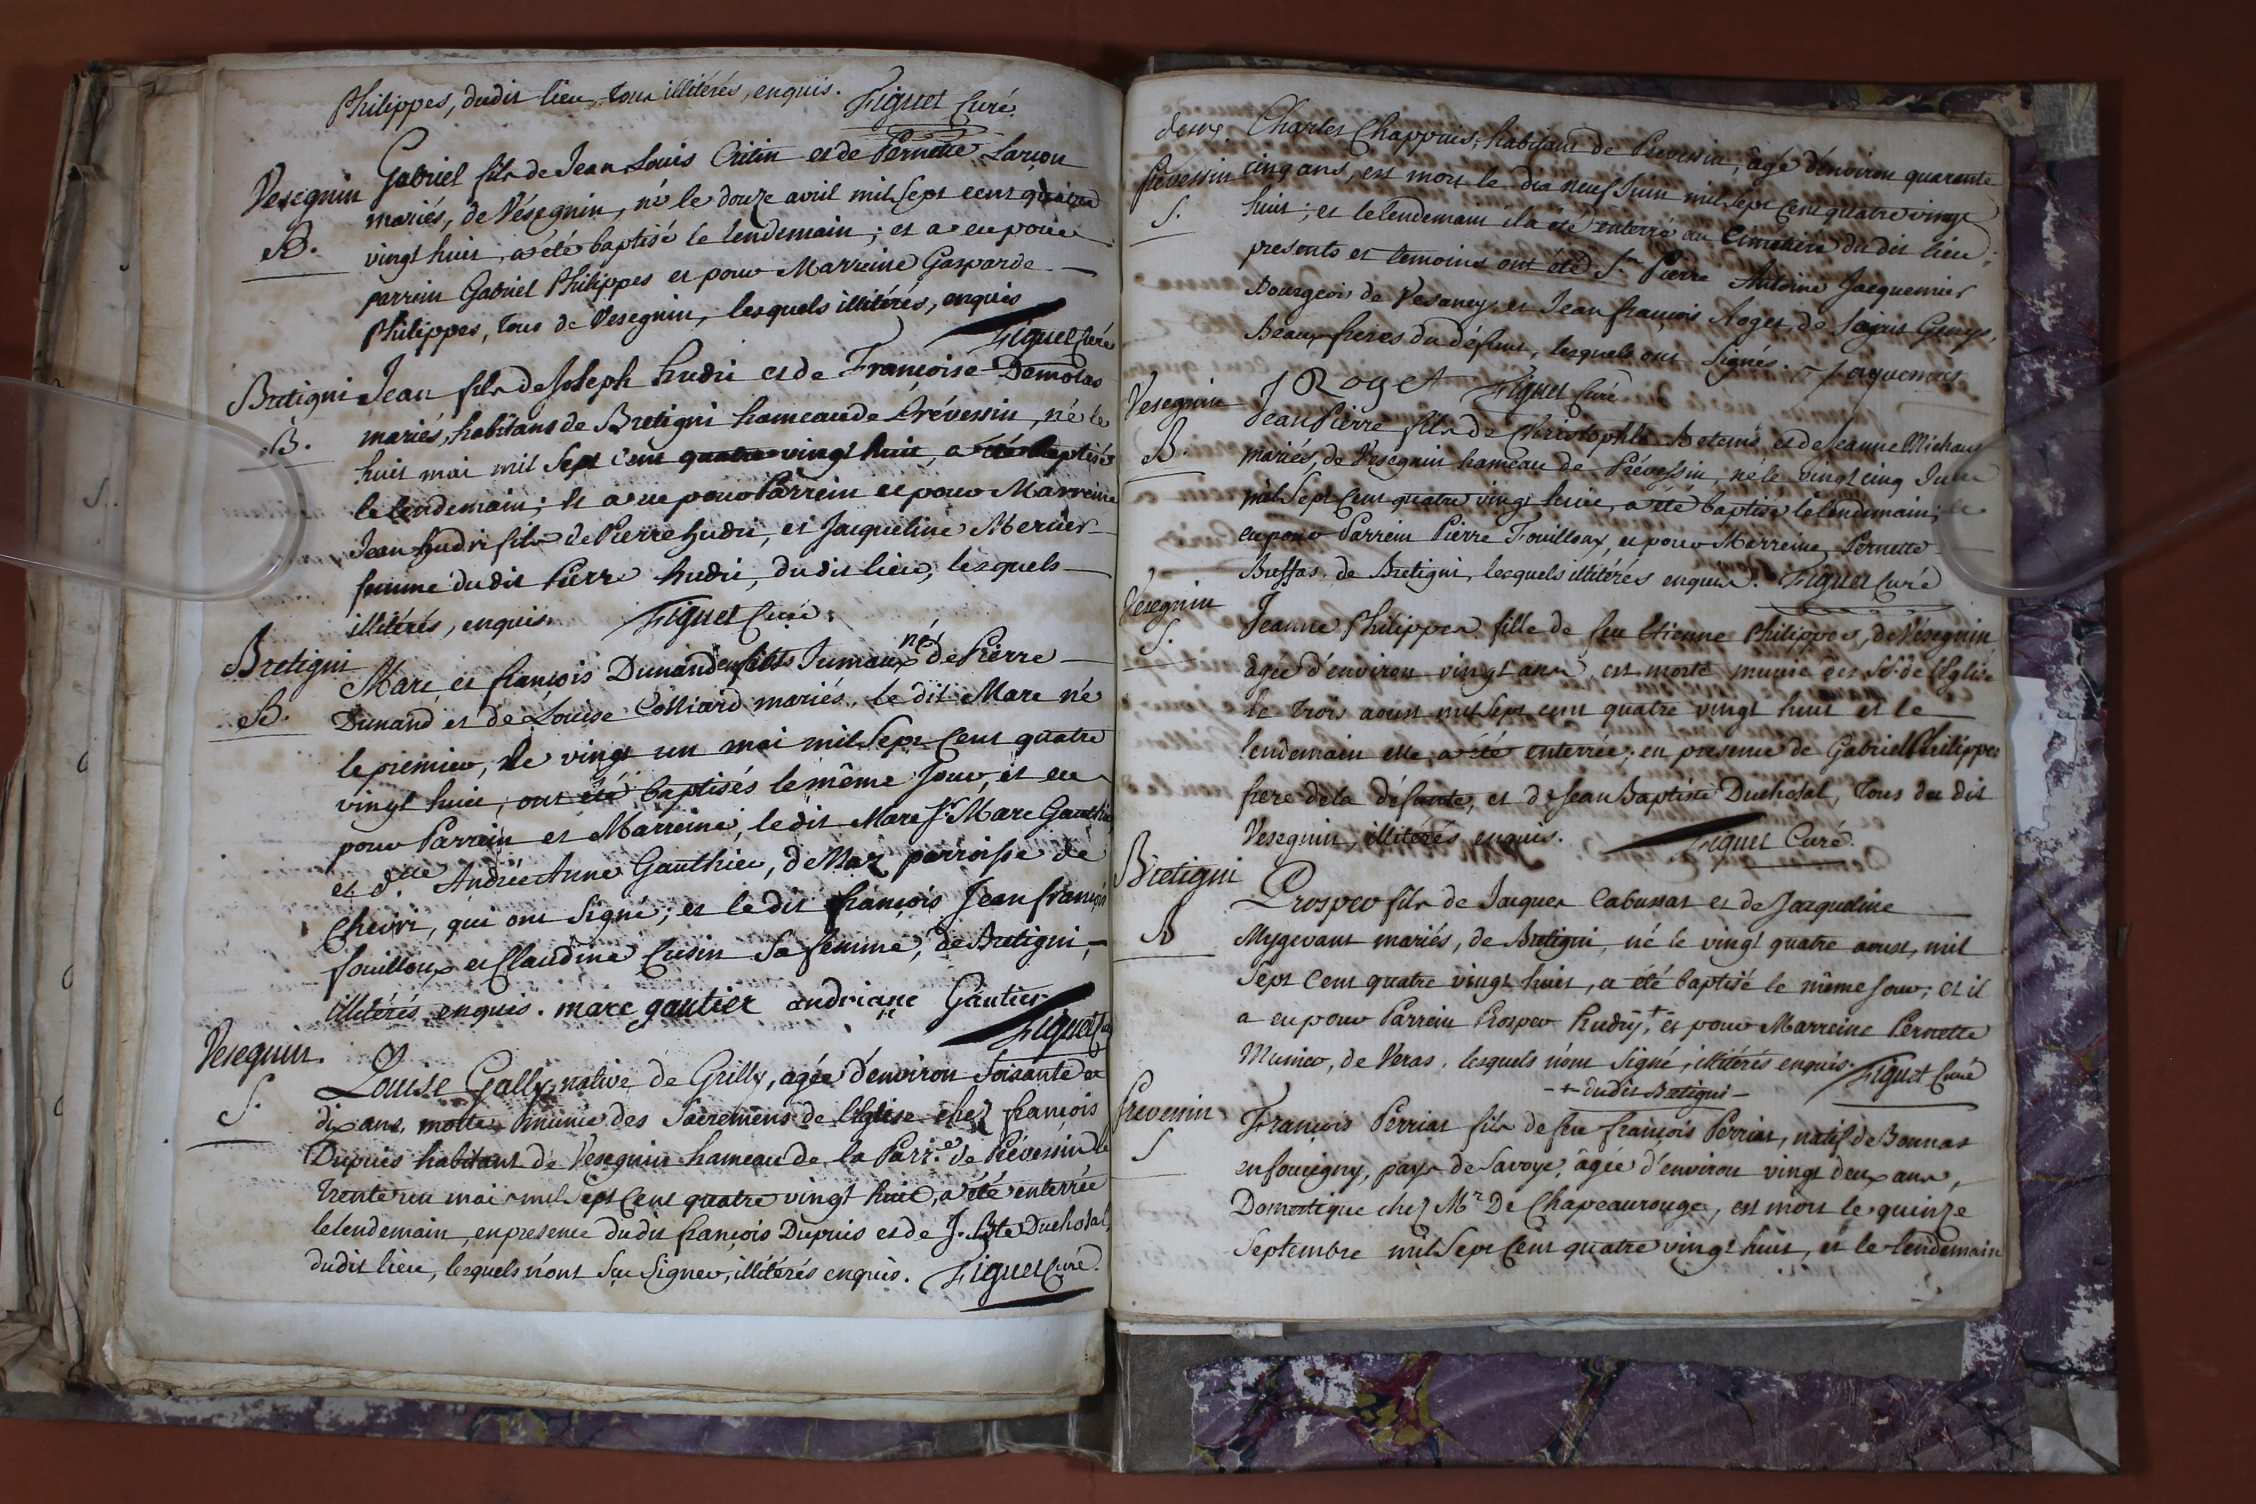 Philippes, dudit lieu, tous illitérés, enquis. Figuet Curé.
Vesegnin
B.
Gabriel fils de Jean Louis Critin et de Pernette Larçon
mariés, de Vésegnin, né le douze avril mil sept cent quatre
vingt huit, a été baptisé le lendemain; et a eu pour
parrein Gabriel Philippes et pour Marreine Gasparde
Philippes, tous de Vesegnin, lesquels illitérés, enquis
Figuet Curé
Bretigni
B.
Jean fils de Joseph hudri et de Françoise Demolas
mariés, habitans de Bretigni hameau de Prévessin, né le
huit mai mil sept cent quatre vingt huit, a été baptisé
le lendemain; et a eu pour Parrein et pour Marreine
Jean hudri fils de Pierre hudri, et Jacqueline Mercier
femme du dit Pierre hudri, du dit lieu, lesquels
illitérés, enquis. Figuet Curé.
Bretigni
B.
Marc et françois Dunand enfants Jumeaux nés de Pierre
Dunand et de Louise Colliard mariés, le dit Marc né
le premier, le vingt un mai mil sept cent quatre
vingt huit, ont été baptisés le même jour, et eu
pour Parrein et Marreine, ledit Marc Sr. Marc Gauthier
et dlle Andrée Anne Gauthier, de Maz parroisse de
Chevri, qui ont signé; et le dit françois Jean françois
fouilloux et Claudine Cusin sa femme, de Bretigni,
illitérés enquis. marc gautier andriane Gautier
Figuet Curé
Vesegnin.
S.
Louise Gally, native de Grilly, agée d'environ soixante et
dix ans, morte munie des Sacremens de l'Eglise chez françois
Dupuis habitant de Vesegnin hameau de la Parr.e de Prévessin le
trente un mai mil sept cent quatre vingt huit, a été enterrée
le lendemain, en presence du dit françois Dupuis et de J. Bte Duchosal,
dudit lieu, lesquels n'ont sçu signer, illitérés enquis. Figuet Curé.
Prévessin
S.
Charles Chappuis, habitant de Prevessin, âgé d'environ quarante
cinq ans, est mort le dix neuf Juin mil sept cent quatre vingt
huit; et le lendemain il a été enterré au Cimetiere du dit lieu;
presents et temoins ont été Sr Pierre Antoine Jacquemier
Bourgeois de Vesancy et Jean françois Roget de Saint Genys,
Beaux-freres du défunt, lesquels ont signés. Jaquemier
J Roget Figuet Curé
Vesegnin
B.
Jean Pierre fils de Christophle Betems et de Jeanne Michaux
mariés, de Vesegnin hameau de Prévessin, né le vingt cinq Juin
mil sept cent quatre vingt huit, a été baptisé le lendemain; a
eu pour Parrein Pierre Fouilloux, et pour Marreine Pernette
Buffas, de Bretigni, lesquels illitérés enquis. Figuet Curé
Vésegnin
S.
Jeanne Philippes fille de feu Etienne Philippes, de Vésegnin
agée d'environ vingt ans, est morte munie des SS. de l'Eglise
le trois aoust mil sept cent quatre vingt huit et le
lendemain elle a été enterrée; en presence de Gabriel Philippes
frere de la défunte, et de Jean Baptiste Duchosal, tous du dit
Vesegnin, illitérés enquis. Figuet Curé.
Bretigni
B
Prosper fils de Jacques Cabussat et de Jacqueline
Mygevant mariés, de Bretigni, né le vingt quatre aoust, mil
sept cent quatre vingt huit, a été baptisé le même jour; et il
a eu pour Parrein Prosper hudry, + et pour Marreine Pernette
Munier, de Veras, lesquels n'ont signé, illitérés enquis. Figuet Curé
+ dudit Bretigni
Prevessin
S
François Perriat fils de feu françois Perriat, natif de Bonnas
en foucigny, pays de Savoye, âgée d'environ vingt deux ans,
Domestique chez Mr De Chapeaurouge, est mort le quinze
Septembre mil sept cent quatre vingt huit, et le lendemain